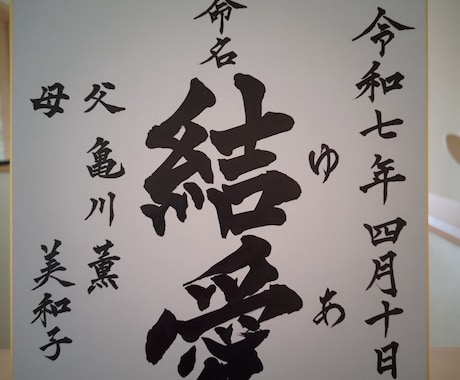 令和七年 四月十日
命名
結愛
ゆあ
父 亀川 薫
母 美和子